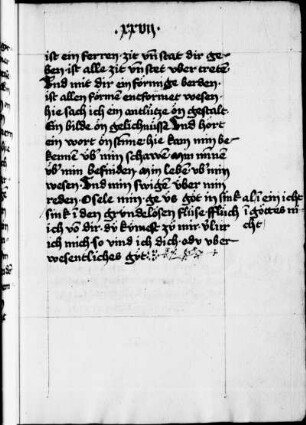 ·xxvii·
ist ein ferren · zit vn̄ stat dir ge-
ben · ist alle zit vn̄ stet vber tretē
Vnd mit dir ein förmige berden
ist allen förmen entformet wesen ·
hie sach ich ein antlütze ōn gestalt
Ein bilde ōn gelichnüsse Vnd hort
ein wort ōn stime hie kam min be-
kennē vb' min schaven Min minē
vb' min befinden Min lebē vb' min
wesen · Vnd min swigē über min
reden · O sele min ge vs göt in sink al i ein icht
sink ī den grvndelosen flüse flüch ī göttes ni
ich vō dir · dv kümest zu mir v'lur cht
ich mich · so vind ich dich · o dv vber
wesentliches göt